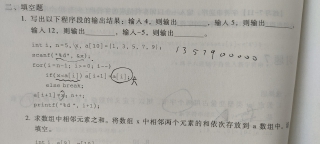 二、填空题
1. 写出以下程序段的输出结果：输入 4，则输出________，输入 5，则输出________，
输入 12，则输出________，输入-5，则输出________。
int i, n=5, x, a[10]={1, 3, 5, 7, 9};
1 3 5 7 9 0 0 0 0 0
scanf("%d", &x);
for(i=n-1; i>=0; i--)
if(x<a[i]) a[i+1]=a[i];
else break;
a[i+1]=x; n++;
printf("%d", i+1);
2. 求数组中相邻元素之和，将数组 x 中相邻两个元素的和依次存放到 a 数组中。
填空。